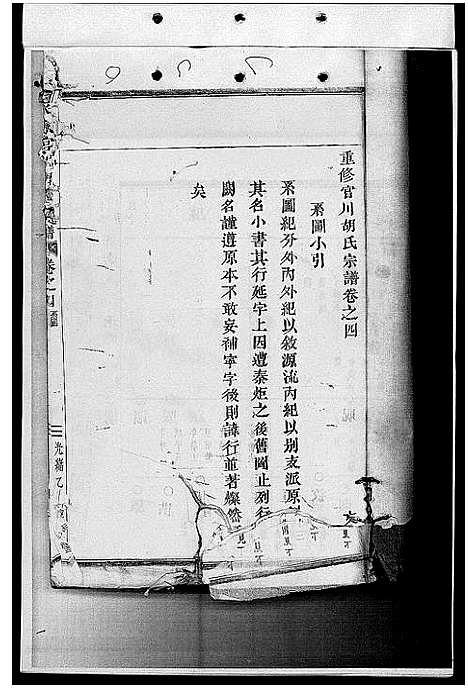 重修官川胡氏宗譜卷之四
系圖小引
系圖紀分外內外紀以敘源流內紀以別支派原
其名小書其行延字上因遭秦炬之後舊圖止列行
闕名謹遵原本不敢妄補寧字後則諱行並著燦然
矣
譜 卷之四
光緒乙